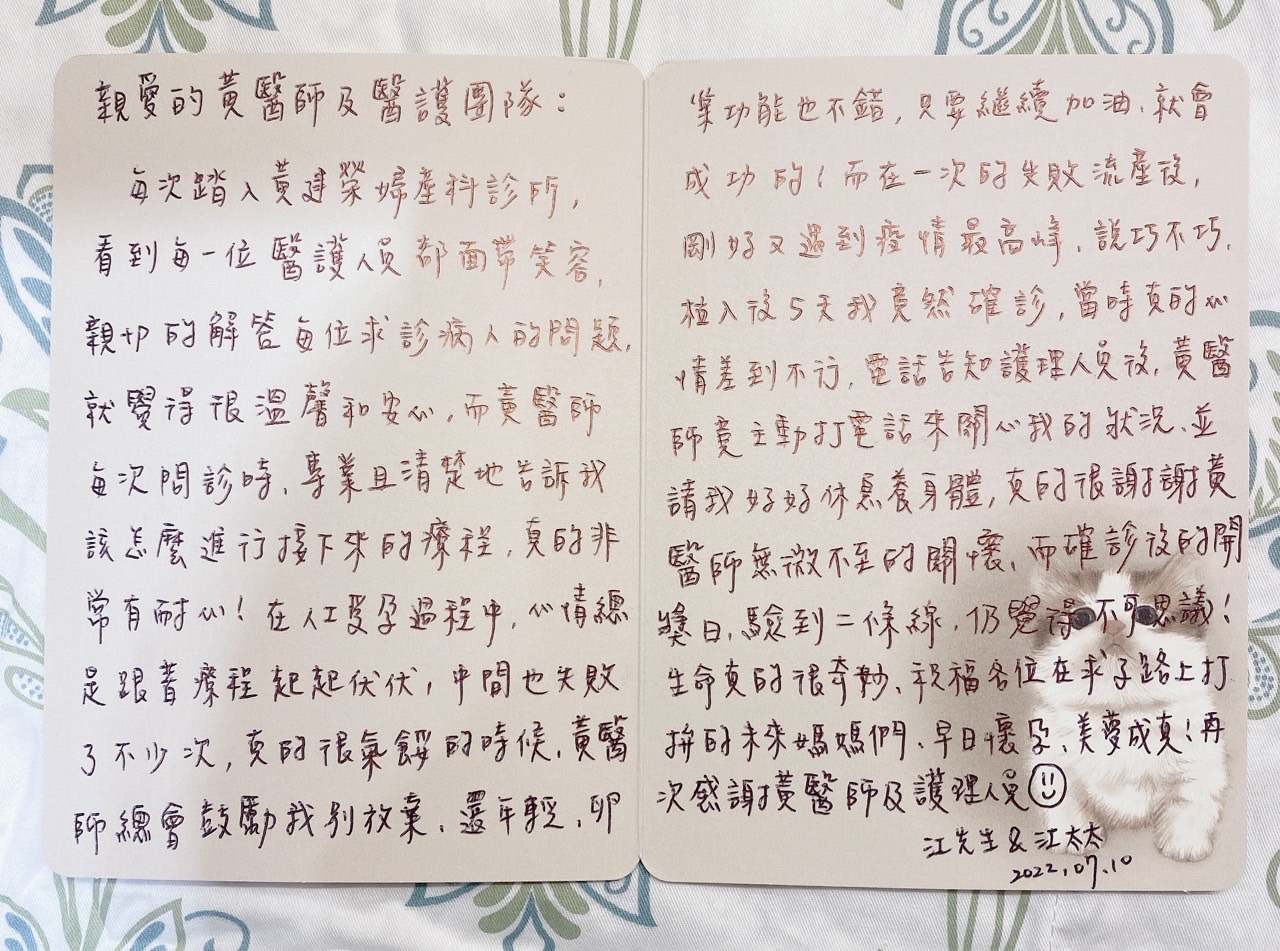 親愛的黃醫師及醫護團隊：
每次踏入黃建榮婦產科診所，
看到每一位醫護人員都面帶笑容，
親切的解答每位求診病人的問題，
就覺得很溫馨和安心，而黃醫師
每次問診時、專業且清楚地告訴我
該怎麼進行接下來的療程，真的非
常有耐心！在人工受孕過程中，心情總
是跟著療程起起伏伏，中間也失敗
了不少次，真的很氣餒的時候，黃醫
師總會鼓勵我別放棄、還年輕、卵
巢功能也不錯，只要繼續加油、就會
成功的！而在一次的失敗流產後，
剛好又遇到疫情最高峰、說巧不巧，
植入後5天我竟然確診，當時真的心
情差到不行，電話告知護理人員後，黃醫
師竟主動打電話來關心我的狀況、並
請我好好休息養身體，真的很謝謝黃
醫師無微不至的關懷、而確診後的開
獎日，驗到二條線，仍覺得不可思議！
生命真的很奇妙、祝福各位在求子路上打
拚的未來媽媽們、早日懷孕、美夢成真！再
次感謝黃醫師及護理人員☺
江先生&江太太
2022.07.10